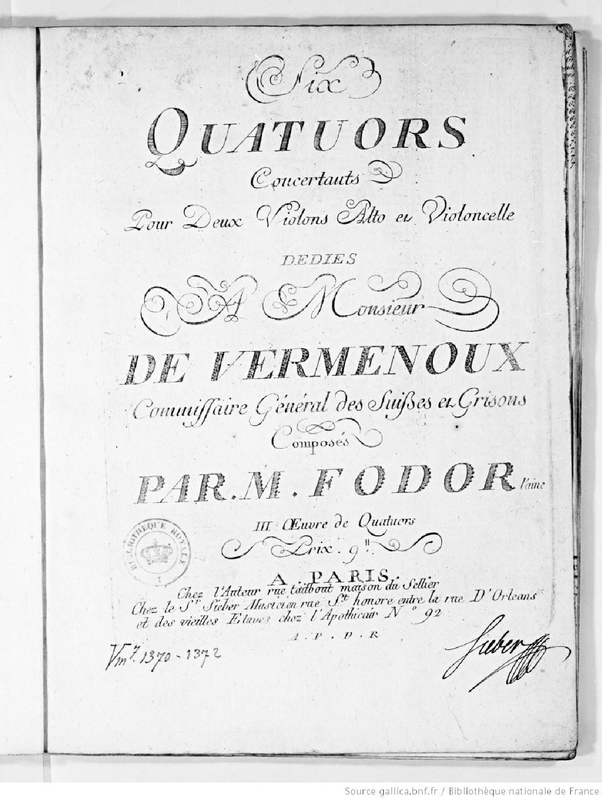 Six
QUATUORS
Concertants
Pour Deux Violons Alto et Violoncelle
DEDIES
A Monsieur
DE VERMENOUX
Commissaire Général des Suißes et Grisons
Composés
PAR. M. FODOR l'ainé
III Œuvre de Quatuors
Prix. 9ᴸᴸ
A PARIS,
Chez l'Auteur rue tailbout maison du Sellier
Chez le Sr. Sieber Musicien rue St. honore entre la rue D'Orleans
et des vieilles Etuves chez l'Apothicair No. 92
A. P. D. R
BIBLIOTHEQUE ROYALE
Vm7. 1370 - 1372
Sieber
Source gallica.bnf.fr / Bibliothèque nationale de France